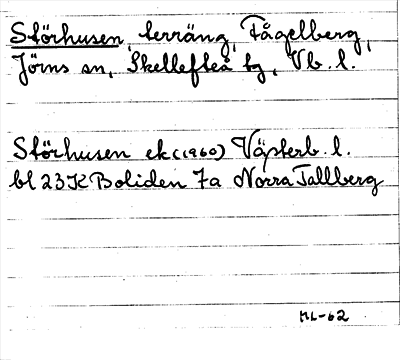 Störhusen, terräng, Fågelberg,
Jörns sn, Skellefteå tg, Vb. l.
Störhusen ek (1960) Västerb. l.
bl 23K Boliden 7a Norra Tallberg
ML-62